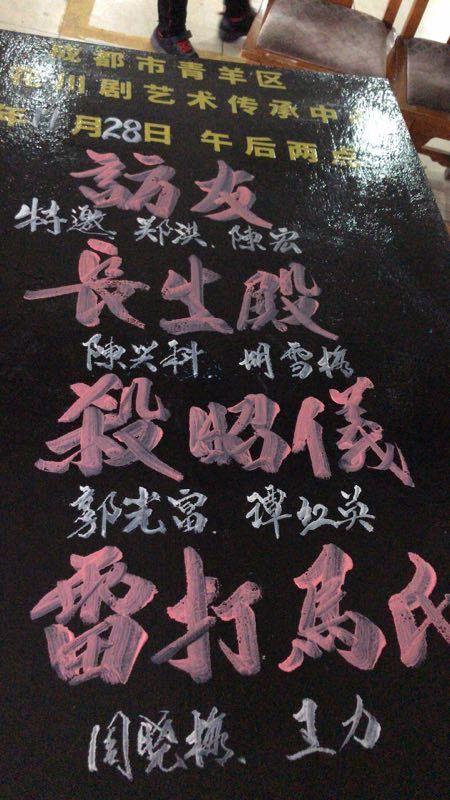 成都市青羊区
川剧艺术传承中
年11月28日 午后两点
訪友
特邀 郑洪、陳宏
長生殿
陳兴科 胡雪梅
殺昭儀
郭光富、譚红英
雷打馬氏
周曉梅、王力